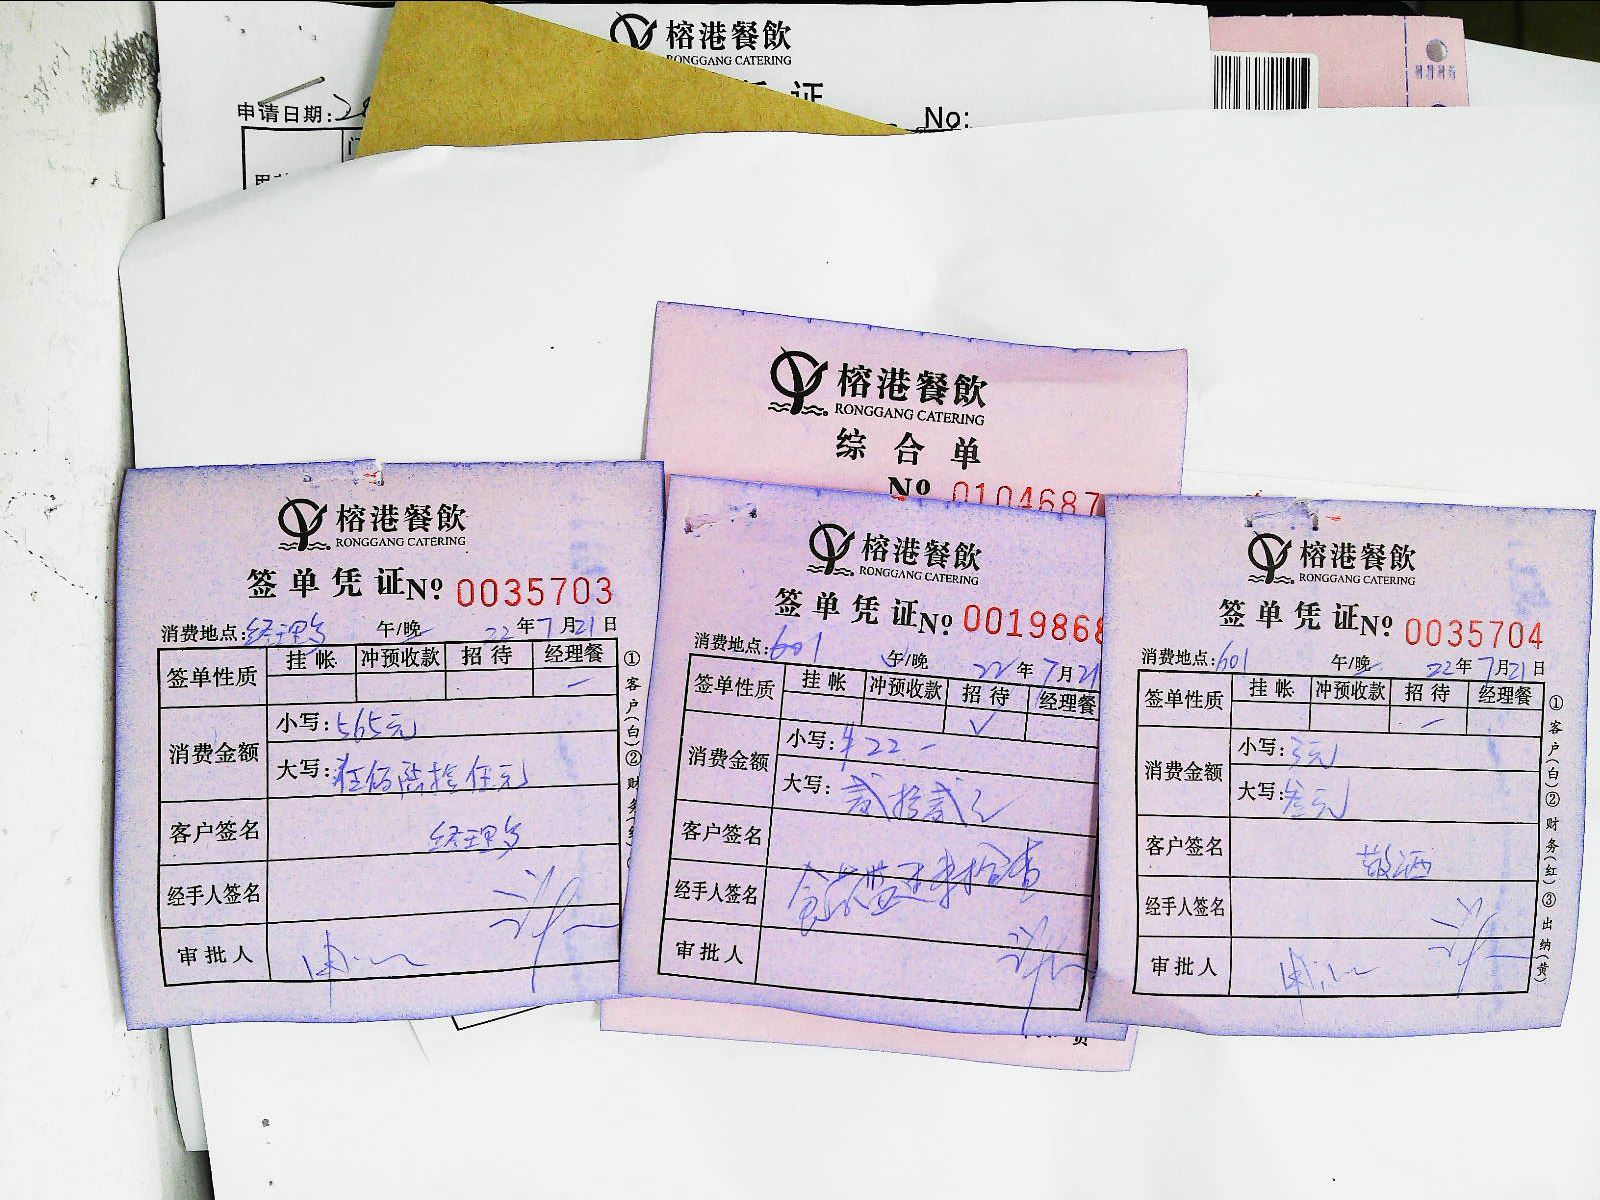 榕港餐飲
RONGGANG CATERING
证
申请日期:
No:
榕港餐飲
RONGGANG CATERING
综合单
№ 0104687
榕港餐飲
RONGGANG CATERING
签单凭证№ 0035703
消费地点: 午/晚 22年7月21日
签单性质 挂帐 冲预收款 招待 经理餐
消费金额 小写:565元
大写:伍佰陆拾伍元
客户签名
经手人签名
审批人
①客户(白)②财务
榕港餐飲
RONGGANG CATERING
签单凭证№ 0019868
消费地点:601 午/晚 22年7月21
签单性质 挂帐 冲预收款 招待 经理餐
✓
消费金额 小写:¥22-
大写:贰拾贰元
客户签名
经手人签名
审批人
榕港餐飲
RONGGANG CATERING
签单凭证№ 0035704
消费地点:601 午/晚 22年7月21日
签单性质 挂帐 冲预收款 招待 经理餐
消费金额 小写:3元
大写:叁元
客户签名 敬酒
经手人签名
审批人
①客户(白)②财务(红)③出纳(黄)